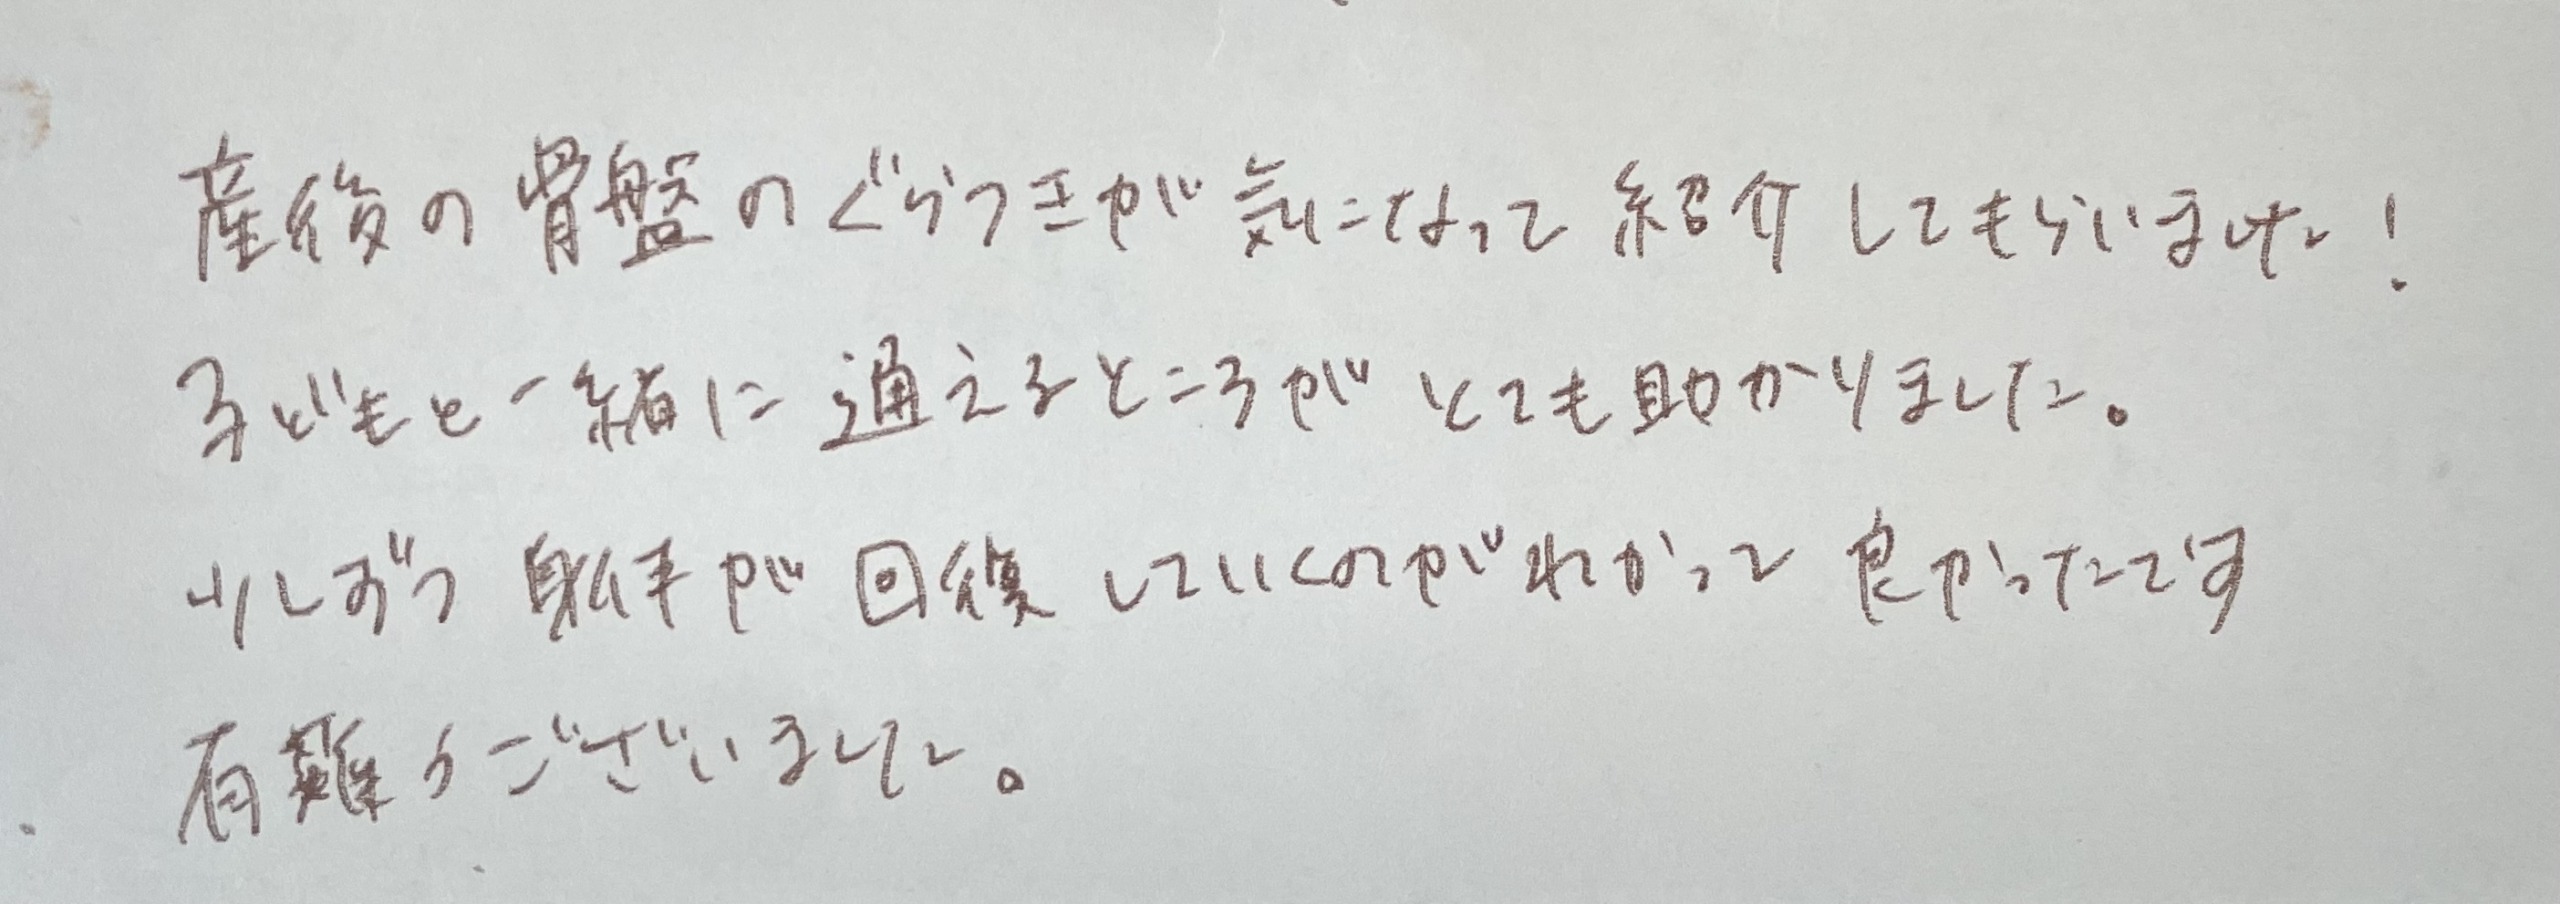 産後の骨盤のぐらつきが気になって紹介してもらいました!
子どもと一緒に通えるところがとても助かりました。
少しずつ身体が回復していくのがわかって良かったです
有難うございました。